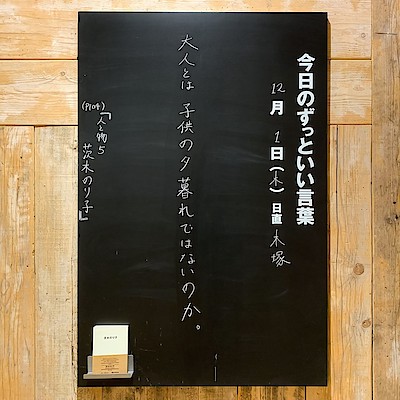 今日のずっといい言葉
12月 1日(木) 日直 木塚
大人とは 子供の夕暮れではないのか。
(P104)「人と物5
茨木のり子」